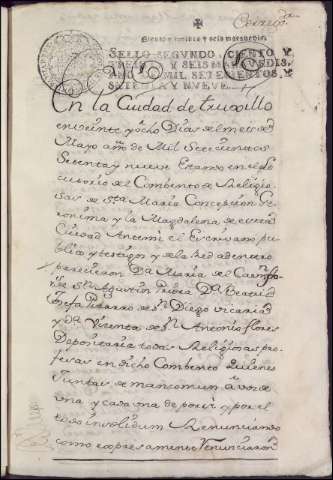 Ciento treinta y seis maravedis
SELLO SEGVNDO, CIENTO Y
TREINTA Y SEIS MARAVEDIS,
AÑO DE MIL SETECIENTOS, Y
SETENTA Y NUEVE.
En la Ciudad de truxillo
en veinte y ocho Dias del mes de
Mayo año de Mil Setecientos
Setenta y nueve Estando en el Lo
cutorio del Combento de Religio
sas de Sta Maria Concepcion Ge
ronima y la Magdalena de
Ciudad Antemi el Escrivano pu
blico y testigos y de la Red adentro
parecieron Da Maria del
de Sn Agustin Priora Da Beatriz
Josefa Pizarro de Sn Diego vicaria
y Da Vizenta de Sn Antonio flores
Depositaria todas Religiosas pro
fesas en dicho Combento Quienes
Juntas de mancomun a voz de
una y cada una de por si y por el
todo insolidum Renunciando
como expresamente Renunciaron